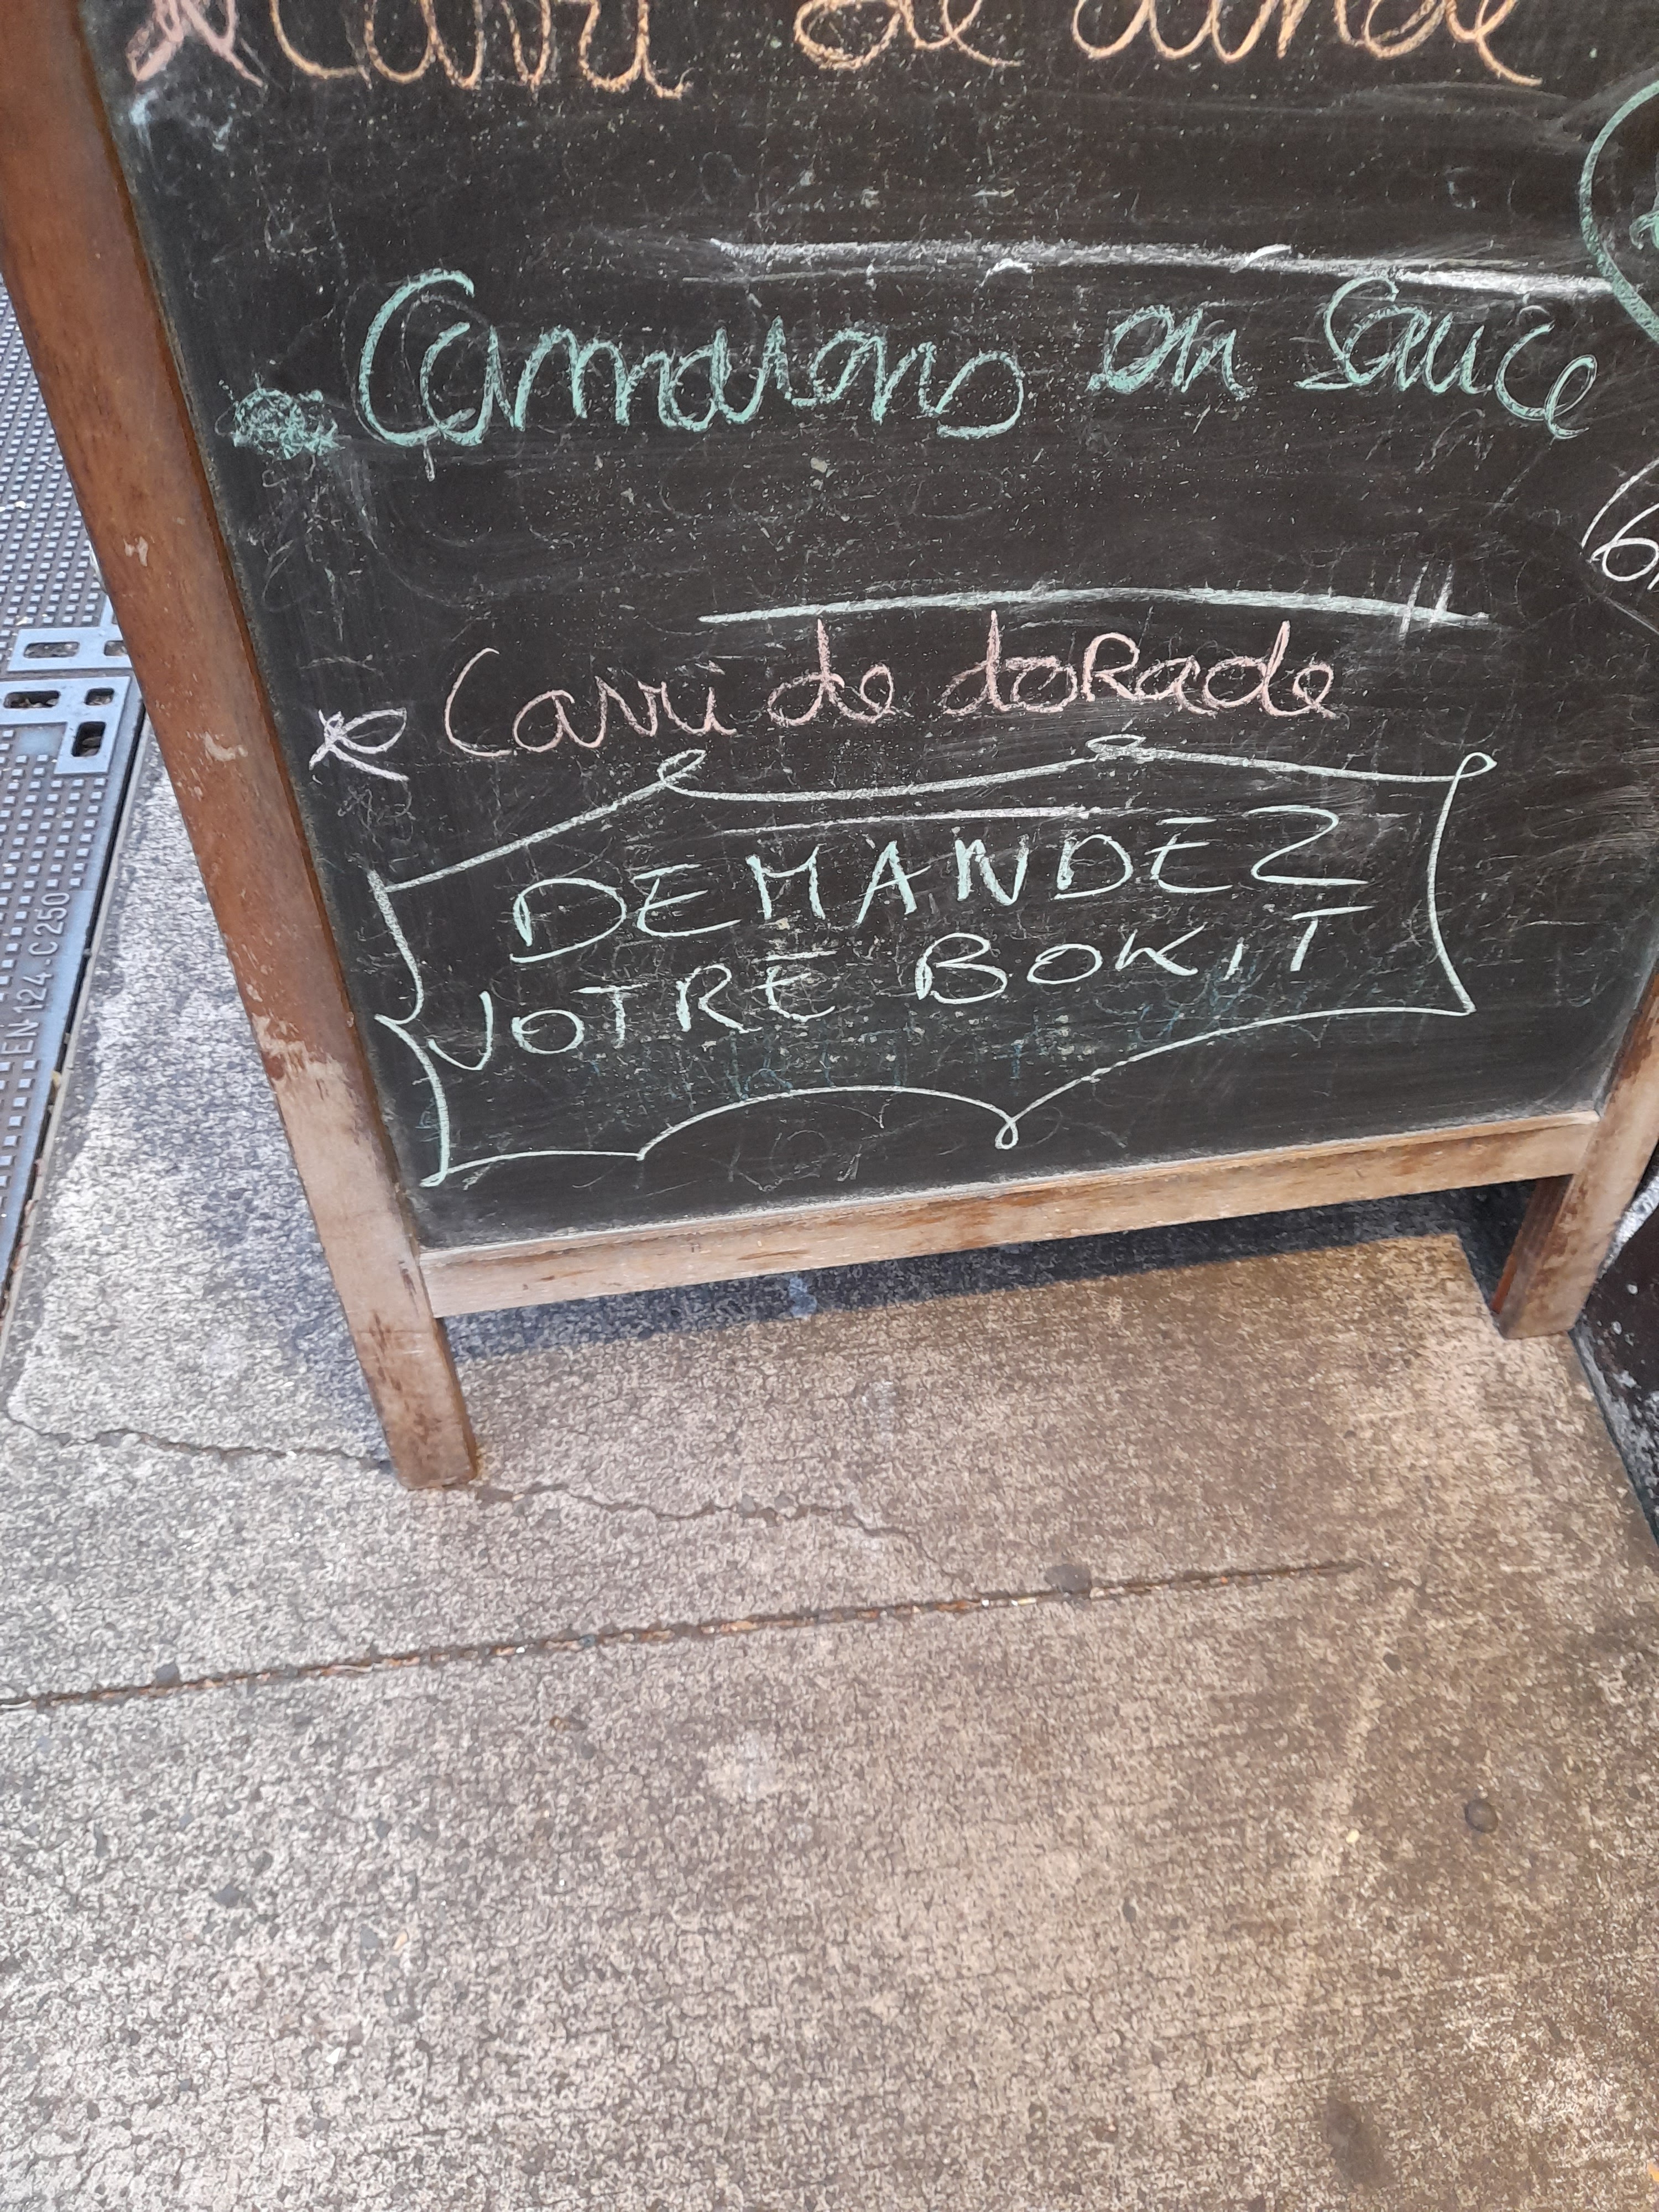 Cavri de dinde
Camarons en sauce
Cavri de doRade
DEMANDEZ
VOTRE BOKIT
EN 124.C250